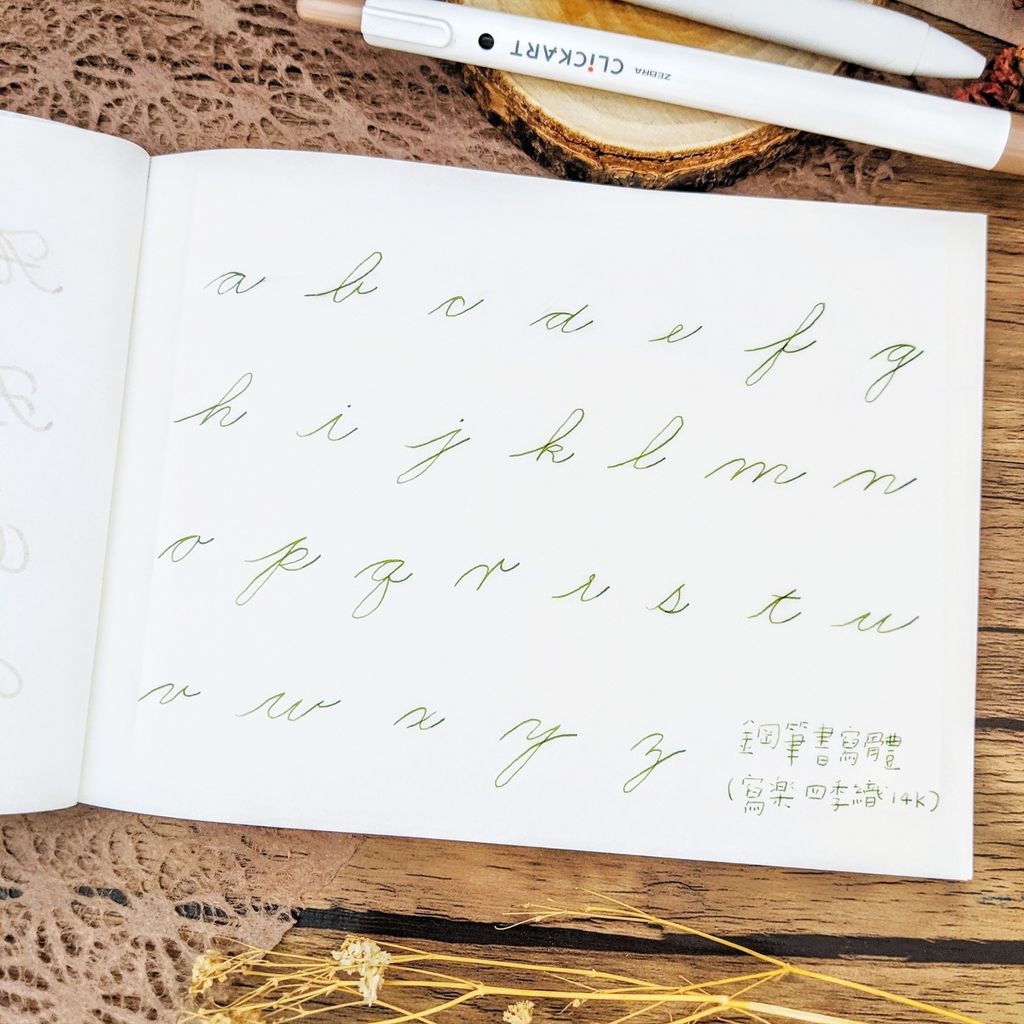 CLiCKART ZEBRA
a b c d e f g
h i j k l m n
o p q r r s t u
v w x y z
鋼筆書寫體
(寫楽 四季織 14K)